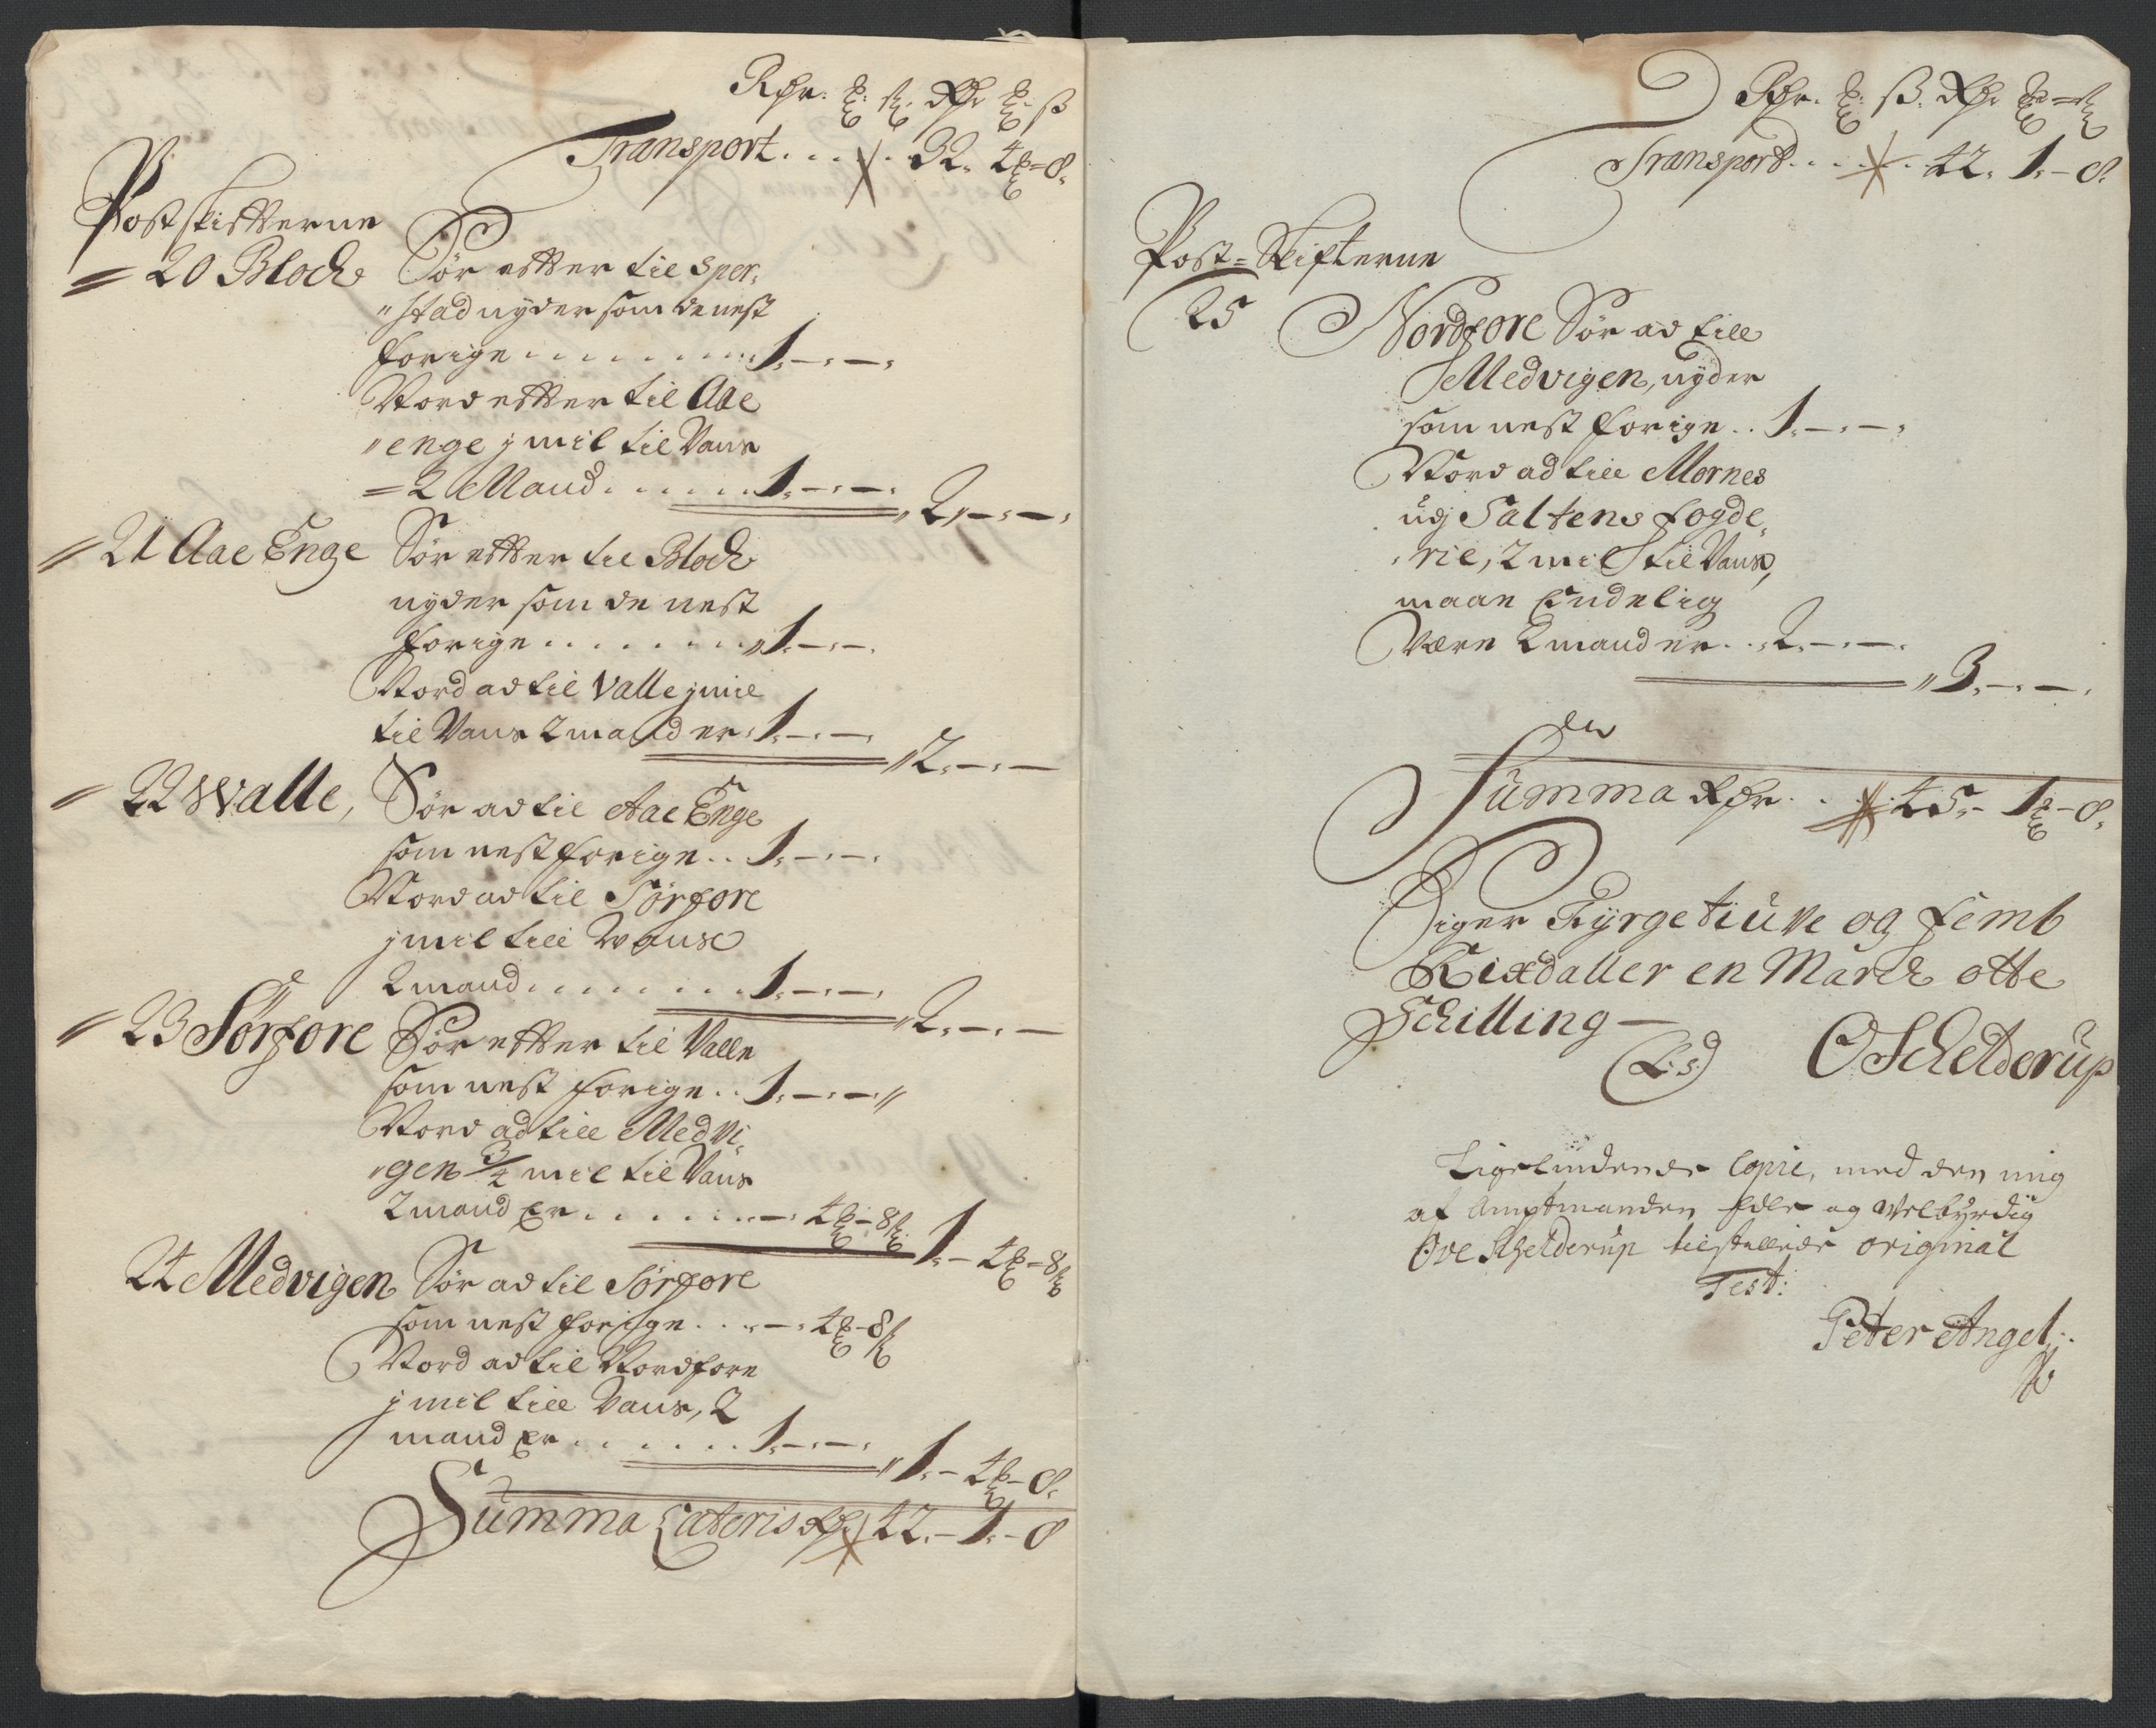 Rdr. ₻: ß. Rdr ₻: ß
Transport . . . . 32. 4₻ - 8.
Postskiffterne
20 Bloch Sør effter til Sper,
"stad nyder som de nest
forige . . . . . . . . 1. - . - .
Nord effter til Aae
"enge j mil til Vans
= 2 Mand . . . . . . 1. - . - .
2. - . - .
21 Aae Enge Sør effter til Bloch
nyder som de nest
forige . . . . . . . . 1. - . - .
Nord ad til Valle j mil
til Vans 2 mander . 1. - . - .
2. - . -
22 Walle, Sør ad til Aae Enge
som nest forige . . 1. - . - .
Nord ad til Sørfore
j mil till Vans
2 mand . . . . . . . . 1. - . - .
2. - . -
23 Sørfore Sør effter til Valle
som nest forige . . 1. - . -
Nord ad till Medvi,
"gen 3/4 mil til Vans
2 mander . . . . . . - . 4₻ - 8ß.
1. - 4₻ - 8ß
24 Medvigen Sør ad til Sørfore
som nest forige . . . - . 4₻ - 8ß
Nord ad til Nordfore
j mil till Vans, 2
mander . . . . . . . 1. - . - .
1. - 4₻ - 8.
Summa Lateris Rdr 42. - 1. - 8
Rdr. ₻: ß. Rdr ₻ = ß
Transport . . . . . 42. 1. - 8.
Post = Skifterne
25 Nordfore Sør ad till
Medvigen, nyder
som nest forige . . 1. - . - .
Nord ad till Mornes
udj Saltens fogde,
"rie, 2 mil till Vans,
maae Endelig
Være 2 mander . . 2. - . - .
3. - . - .
Summa Rdr . . . 45. - 1₻ - 8.
Siger Fyrgetiuve og femb
Rixdaller en Marck otte
Schilling -
(L. S.) O Schelderup
Ligelydende Copie, med den mig
af Amptmanden Edle og Velbyrdig
Ove Schelderup tilstillede original
Test:
Peter Angel: